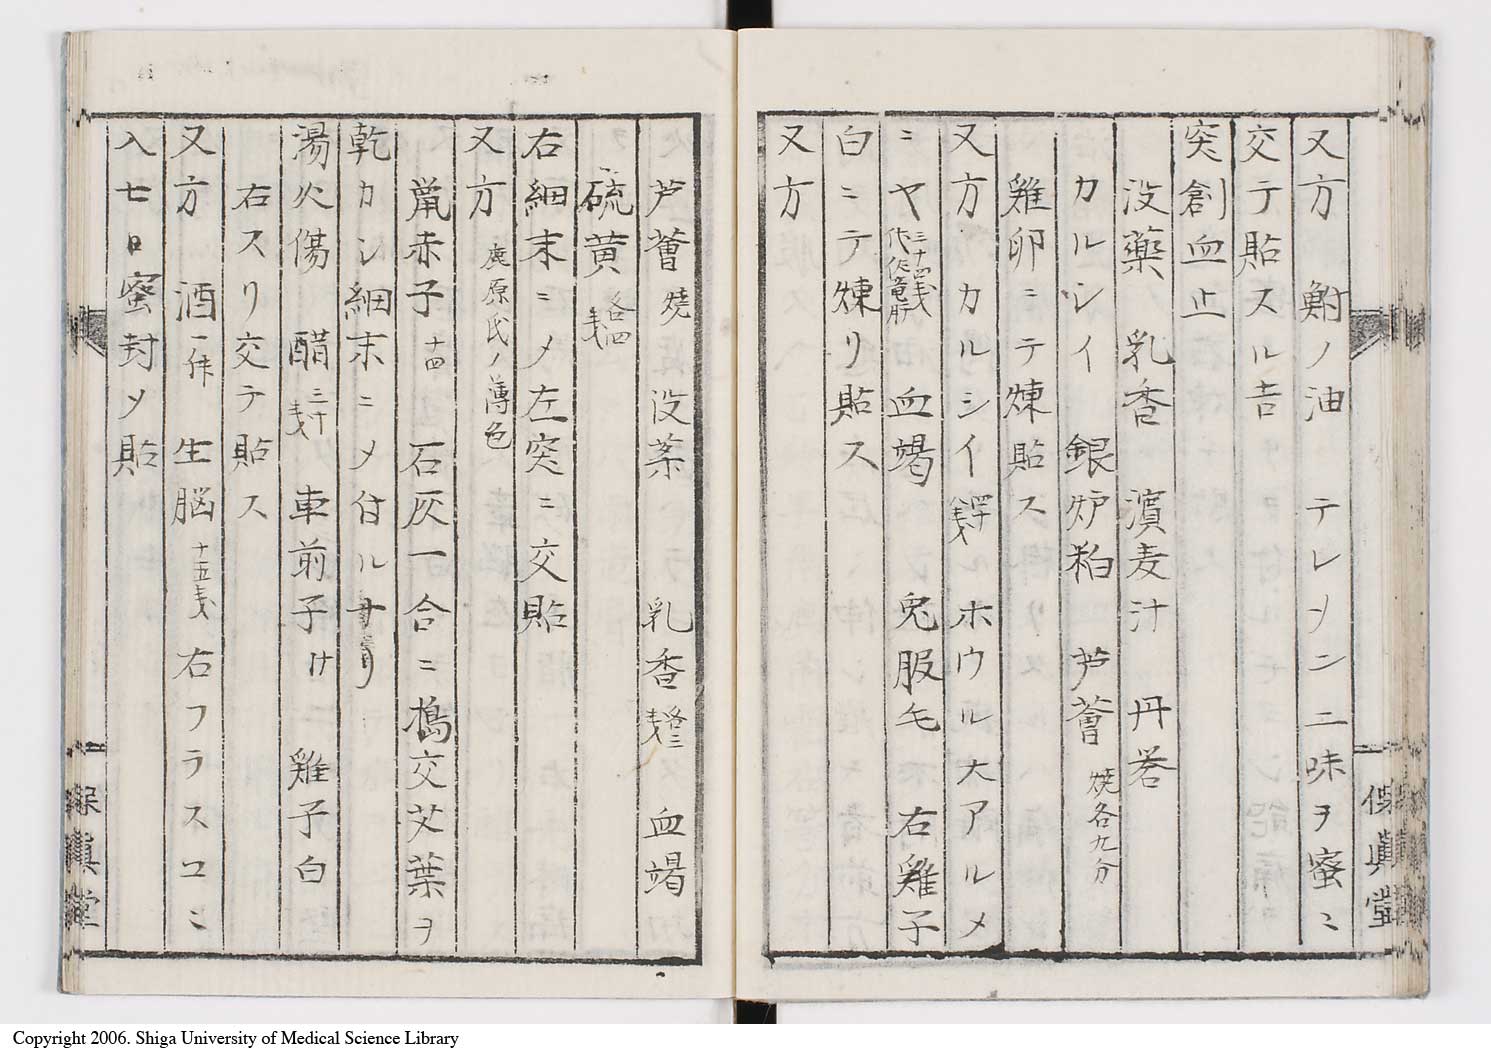 又方 鮒ノ油 テレメンニ味ヲ蜜ニ
交テ貼スル吉
突創血止
没藥 乳香 濱麦汁 丹
カルシイ 銀炉粕 芦薈 焼各九分
雞卵ニテ煉貼ス
又方 カルシイ 四十戔 ホウルホアルメ
ニヤ 三十四戔 代佐竜脳 血竭 兎服毛 右雞子
白ニテ煉リ貼ス
又方
芦薈 焼 没薬 乳香 各三戔 血竭
硫黄 各四戔
右細末ニメ左突ニ交貼
又方 鹿原氏ノ薄色
鼠赤子 十四 石灰一合ニ搗交艾葉ヲ
乾カシ細末ニメ付ル
湯火傷 醋 三十戔 車前子汁 雞子白
右スリ交テ貼ス
又方 酒 一 生脳 十五戔 右フラスコニ
入七日蜜封メ貼
保眞堂
保眞堂
Copyright 2006. Shiga University of Medical Science Library